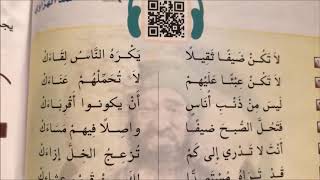 لَا تَكُنْ ضَيْفًا ثَقِيلًا يَكْرَهُ النَّاسُ لِقَاءَكْ
لَا تَكُنْ عِبْئًا عَلَيْهِمْ لَا تُحَمِّلْهُمْ عَنَاءَكْ
لَيْسَ مِنْ ذَنْبِ أُنَاسٍ أَنْ يَكُونُوا أَقْرِبَاءَكْ
فَتَحُلَّ الصُّبْحَ ضَيْفًا وَاصِلًا فِيهِمْ مَسَاءَكْ
أَنْتَ لَا تَدْرِي إِلَى كَمْ تُزْعِجُ الْخَلَّ إِزَاءَكْ